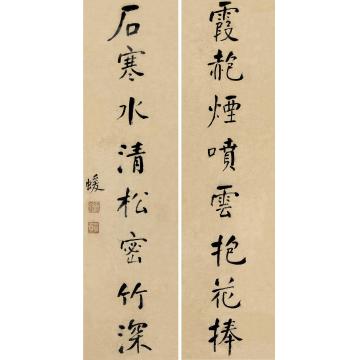 霞赩煙噴雲抱花捧
石寒水清松密竹深
蝯